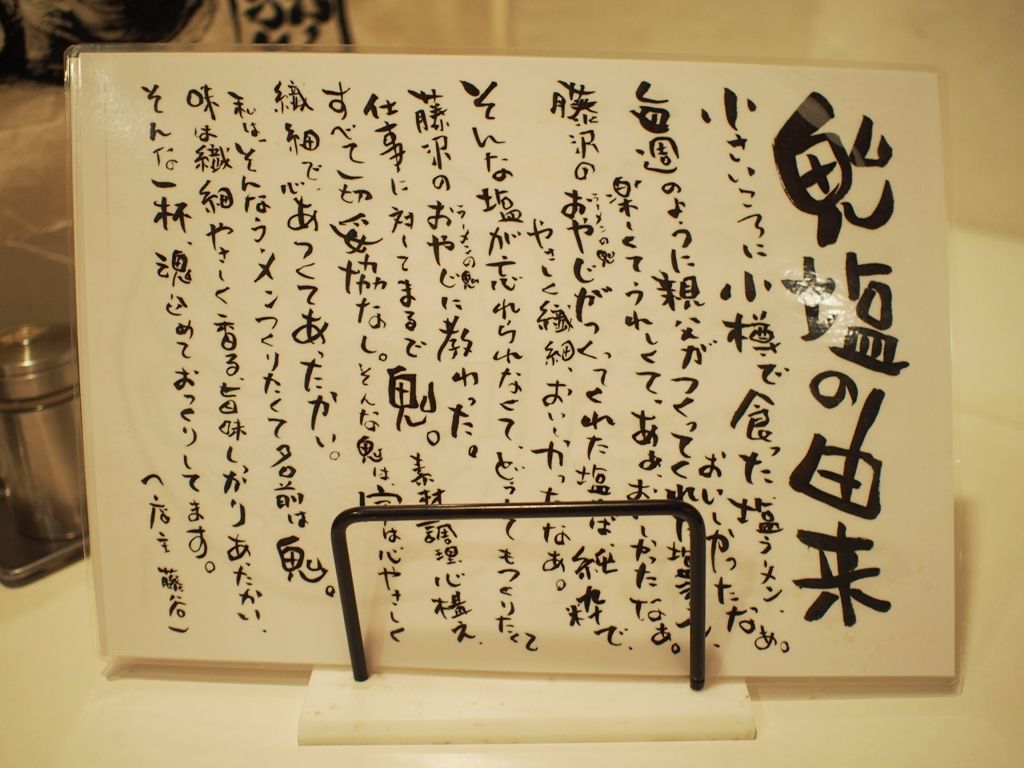 鬼塩の由来
小さいころに小樽で食った塩ラーメン、
おいしかったなぁ。
毎週のように親父がつくってくれた塩ラーメン、
楽しくてうれしくて、あぁ、おいしかったなぁ。
藤沢のおやじがつくってくれた塩は純粋で、
ラーメンの鬼
やさしく繊細、おいしかったなぁ。
そんな塩が忘れられなくて、どうしてもつくりたくて
藤沢のおやじに教わった。
ラーメンの鬼
仕事に対してまるで鬼。素材、調理、心構え、
すべて一切妥協なし。そんな鬼は、実は心やさしく
繊細で、心あつくてあったかい。
私は、そんなラーメンつくりたくて名前は鬼。
味は繊細やさしく香る、旨味しっかりあたたかい、
そんな一杯、魂込めておつくりしてます。
（店主 藤谷）